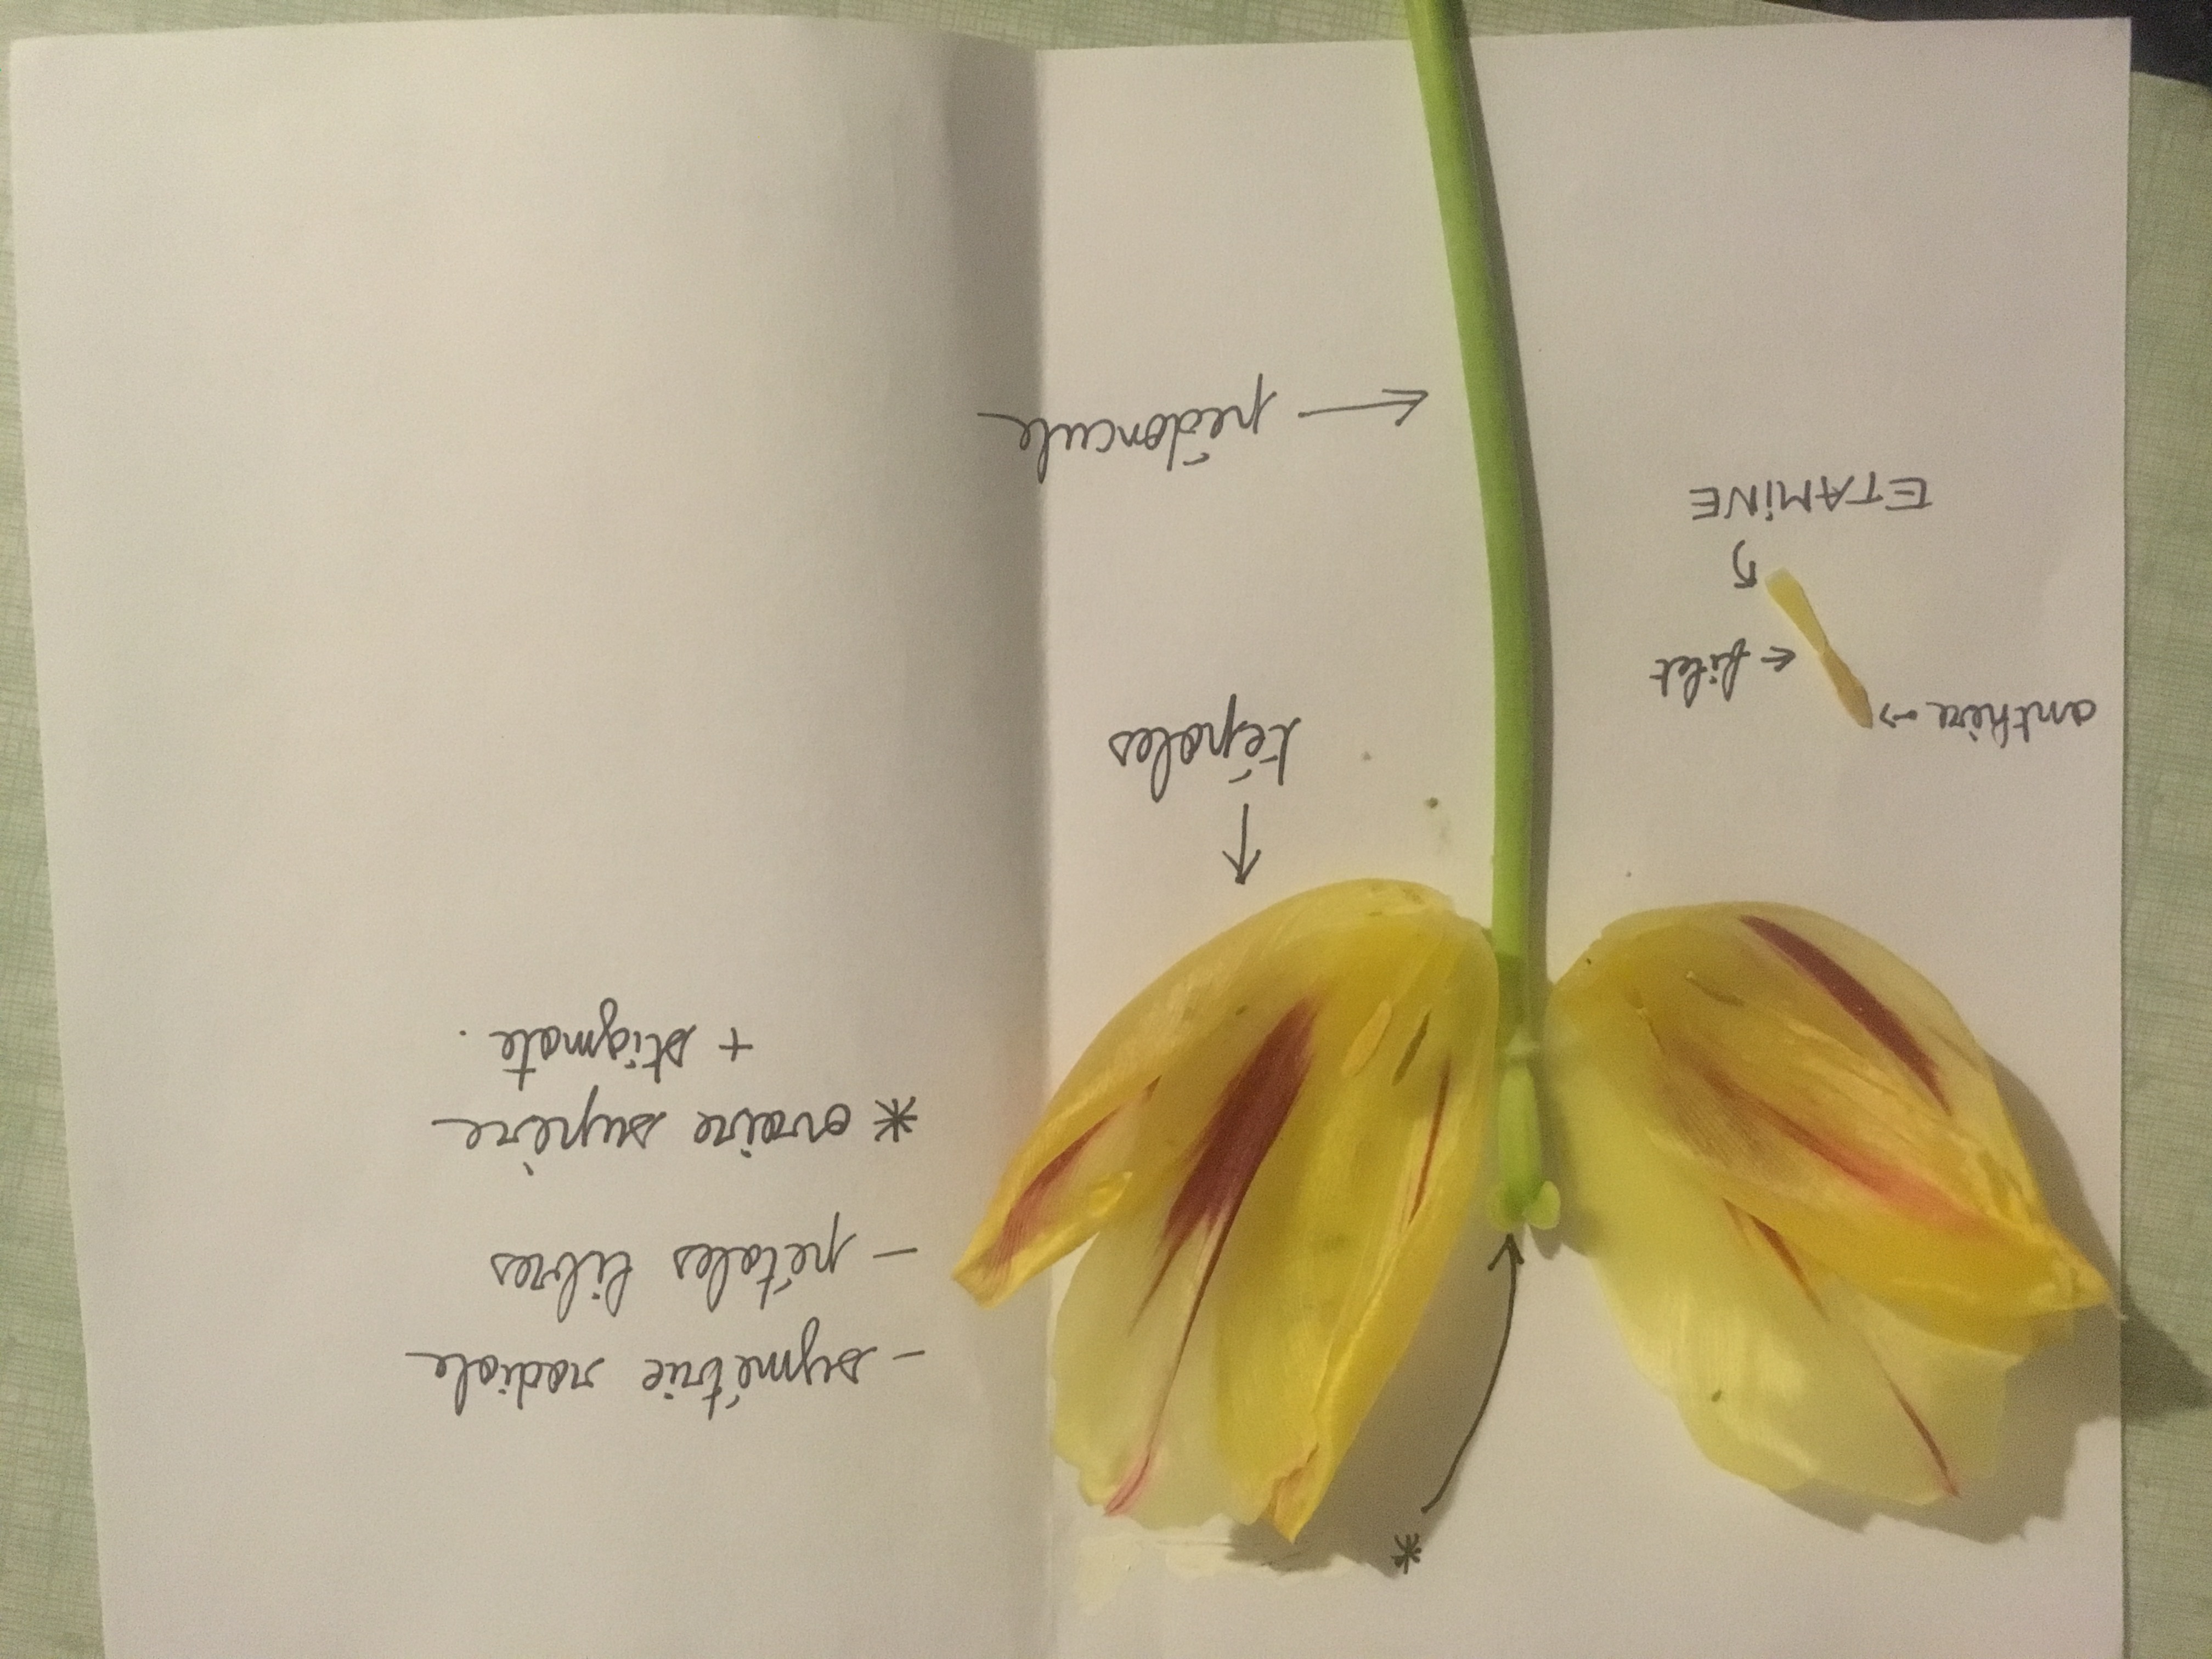 - symétrie radiale
- pétales libres
* ovaire supère
+ stigmate.
*
tépales
pédoncule
anthère
filet
ETAMINE